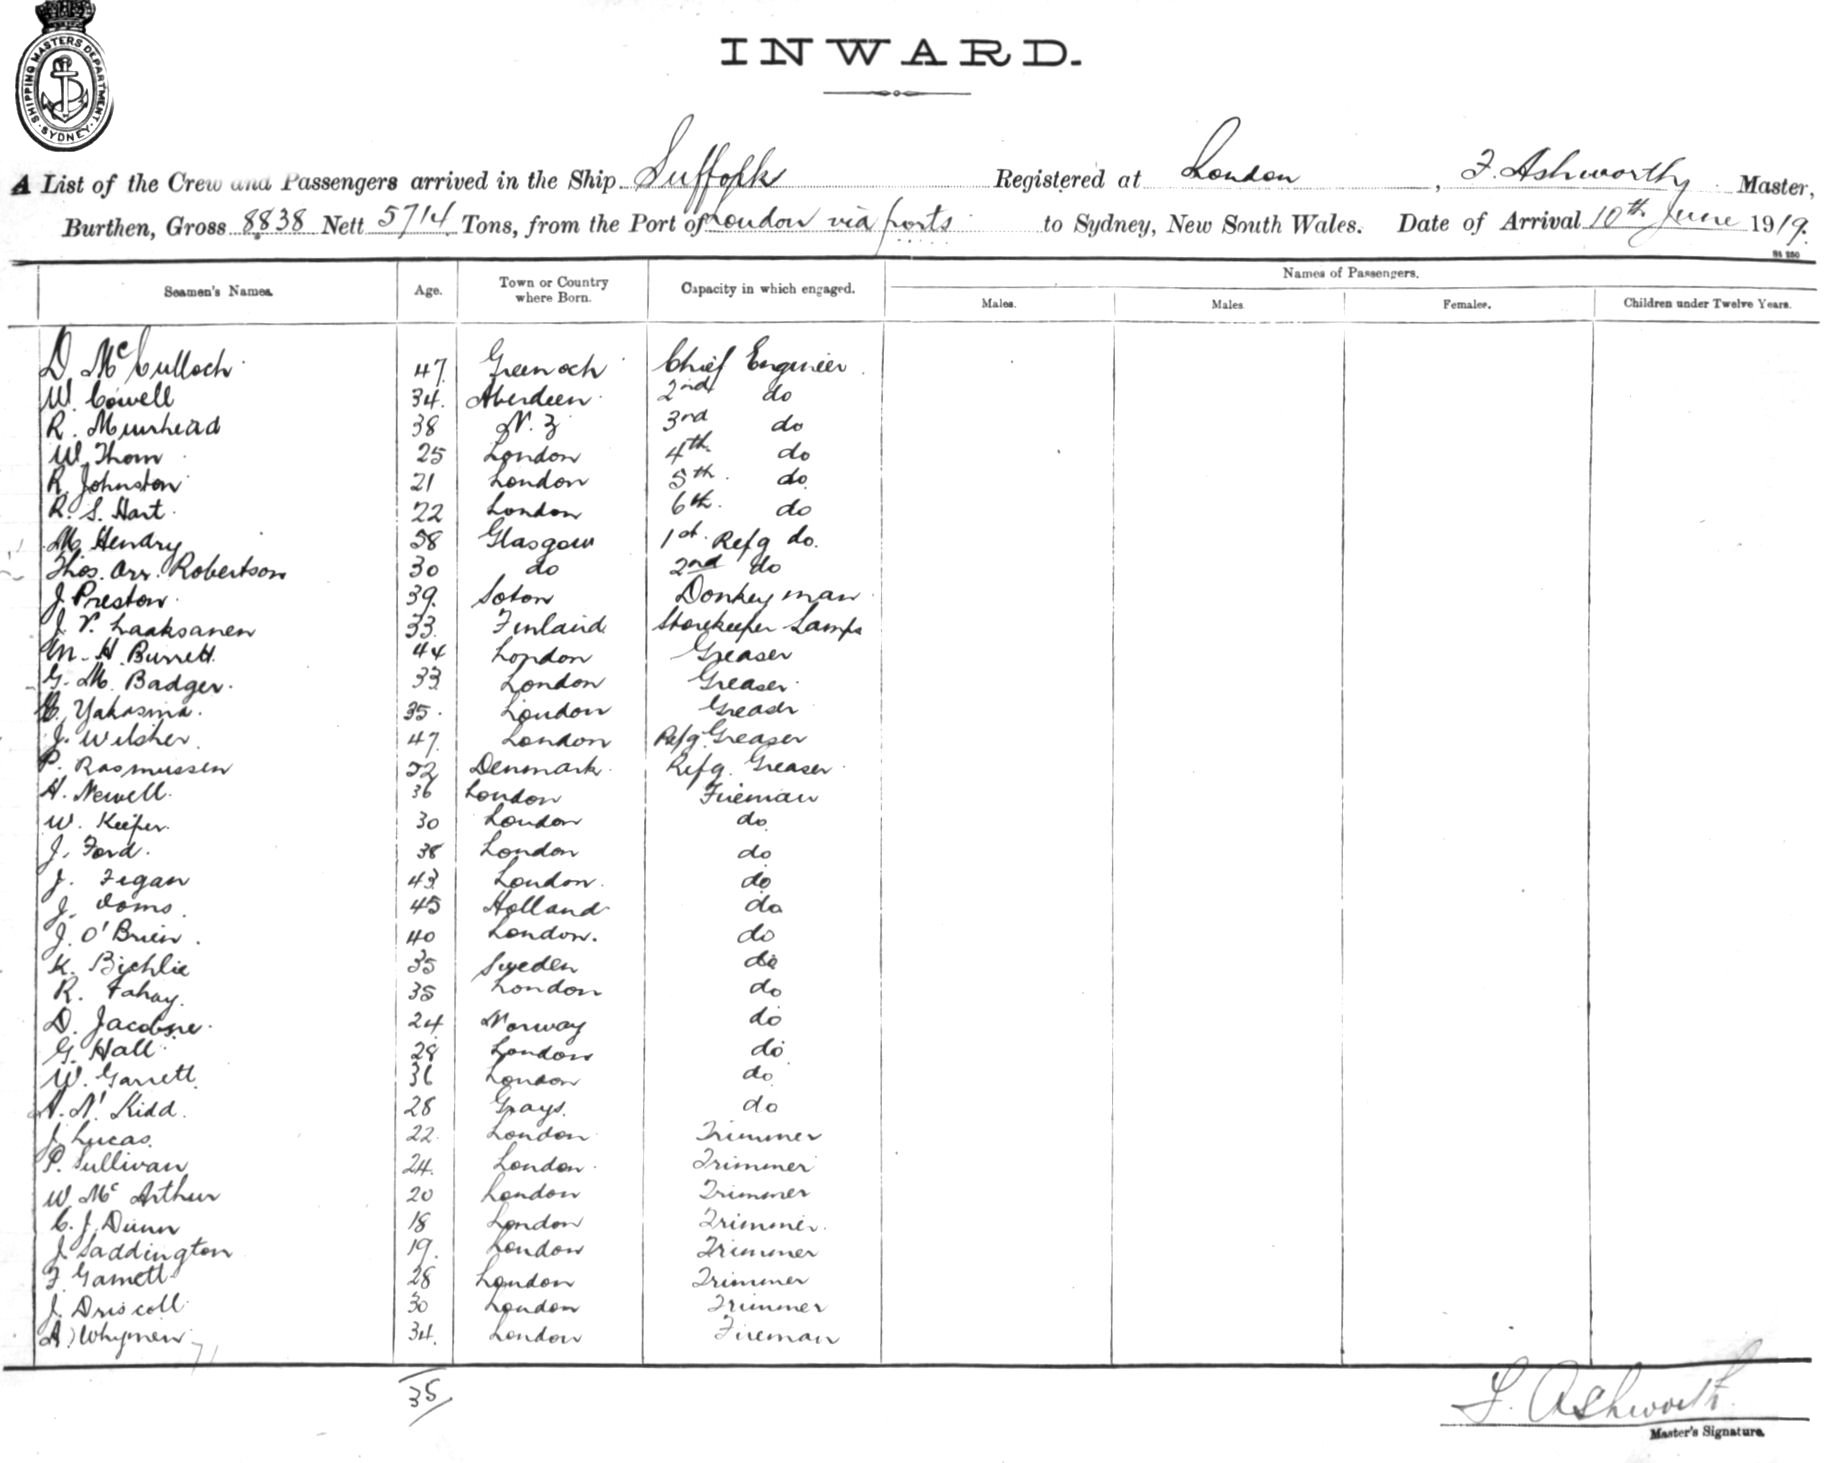 SHIPPING MASTERS DEPARTMENT. SYDNEY.
INWARD.
A List of the Crew and Passengers arrived in the Ship Suffolk Registered at London, F. Ashworth Master,
Burthen, Gross 8838 Nett 5714 Tons, from the Port of London via ports to Sydney, New South Wales. Date of Arrival 10th June 1919.
Seamen's Names. Age. Town or Country where Born. Capacity in which engaged. Names of Passengers.
Males. Males. Females. Children under Twelve Years.
D McCulloch 47 Greenoch Chief Engineer
W. Cowell 34. Aberdeen 2nd do
R. Muirhead 38 N. Z 3rd do
W. Thom 25 London 4th do
R. Johnston 21 London 5th do
R. S. Hart 22 London 6th do
M. Hendry 58 Glasgow 1st Refg do.
Thos. Robertson 30 do 2nd do
J Preston 39. Soton Donkeyman
J. V. Laaksanen 33. Finland Storekeeper Lamps
M. H. Burrett 44 London Greaser
G. M. Badger. 33 London Greaser
Yakasma. 35. London Greaser
J. Wilsher. 47. London Refg. Greaser
P. Rasmussen 52 Denmark Refg. Greaser
H. Newell. 36 London Fireman
W. Keeper. 30 London do
J. Ford. 38 London do
J. Fegan 43 London. do
J. Doms. 45 Holland do
J. O'Brien. 40 London. do
K. Bichlie 35 Sweden do
R. Fahay. 35 London do
D. Jacobsne. 24 Norway do
G. Hall 28 London do
W. Garrett. 36 London do
A. N. Kidd. 28 Grays. do
J. Lucas. 22 London Trimmer
P. Sullivan 24. London Trimmer
W. Mc Arthur 20 London Trimmer
C. J. Dunn 18 London Trimmer.
J. Saddington 19. London Trimmer
F. Garnett 28 London Trimmer
J. Driscoll 30 London Trimmer
A. Whymen 34. London Fireman
35
F. Ashworth.
Master's Signature.